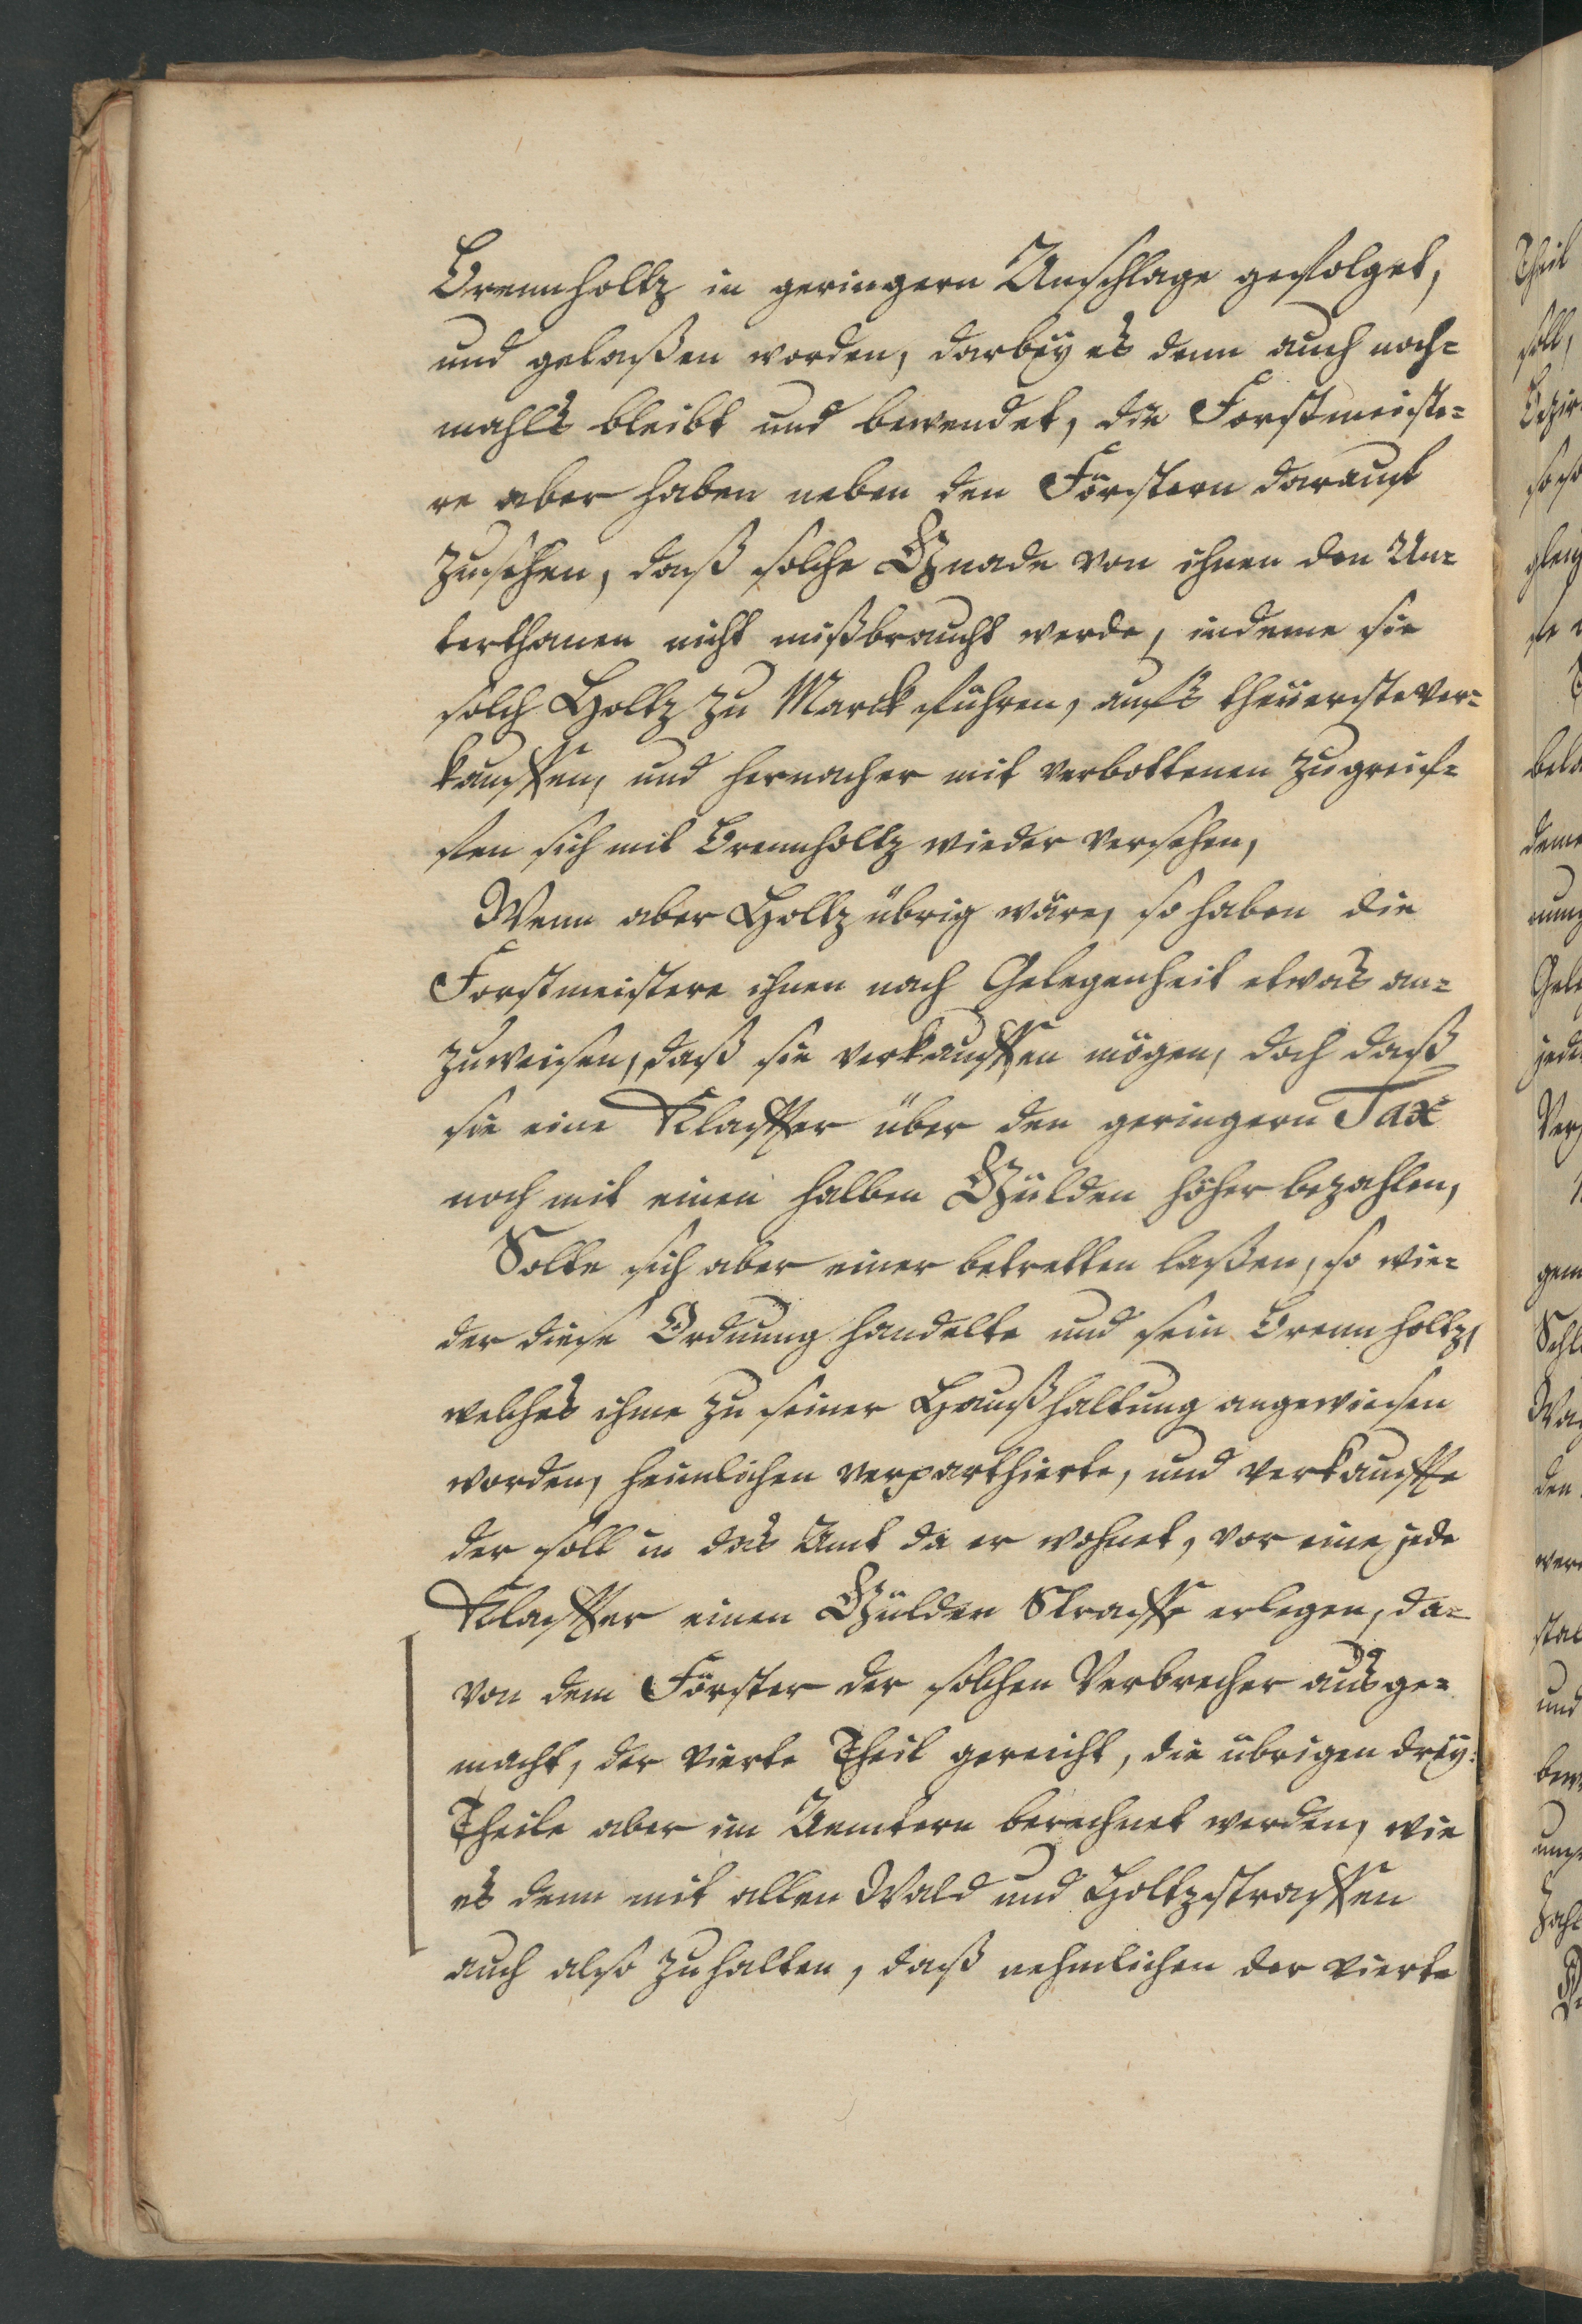 Brennholtz in geringern Anschlage gefolget,
und gelaßen worden, darbey es denn auch noch=
mahls bleibt und bewendet, die Forstmeiste=
re aber haben neben den Förstern darauf
zusehen, daß solche Gnade von ihnen den Un=
terthanen nicht mißbraucht werde, indeme sie
solch Holtz zu Marck führen, aufs theuerste ver=
kauffen, und hernacher mit verbottenen zugreif=
fen sich mit Brennholtz wieder versehen,
Wenn aber Holtz übrig wäre, so haben die
Forstmeistere ihnen nach Gelegenheit etwas an=
zuweisen, daß sie verkauffen mögen, doch daß
sie eine Klaffter über den geringern Tax
noch mit einen halben Gülden höher bezahlen,
Solte sich aber einer betretten laßen, so wie=
der diese Ordnung handelte und sein Brennholtz,
welches ihme zu seiner Haußhaltung angewiesen
worden, heimlichen verparthierte, und verkauffte
der soll in das Amt da er wohnet, vor eine jede
Klaffter einen Gülden Straffe erlegen, da=
von dem Förster der solchen Verbrecher ausge=
macht, der vierte Theil gereicht, die übrigen drey
Theile aber im Aemtern berechnet werden, wie
es denn mit allen Wald und Holtzstraffen
auch also zuhalten, daß nehmlichen der vierte
Theil
soll,